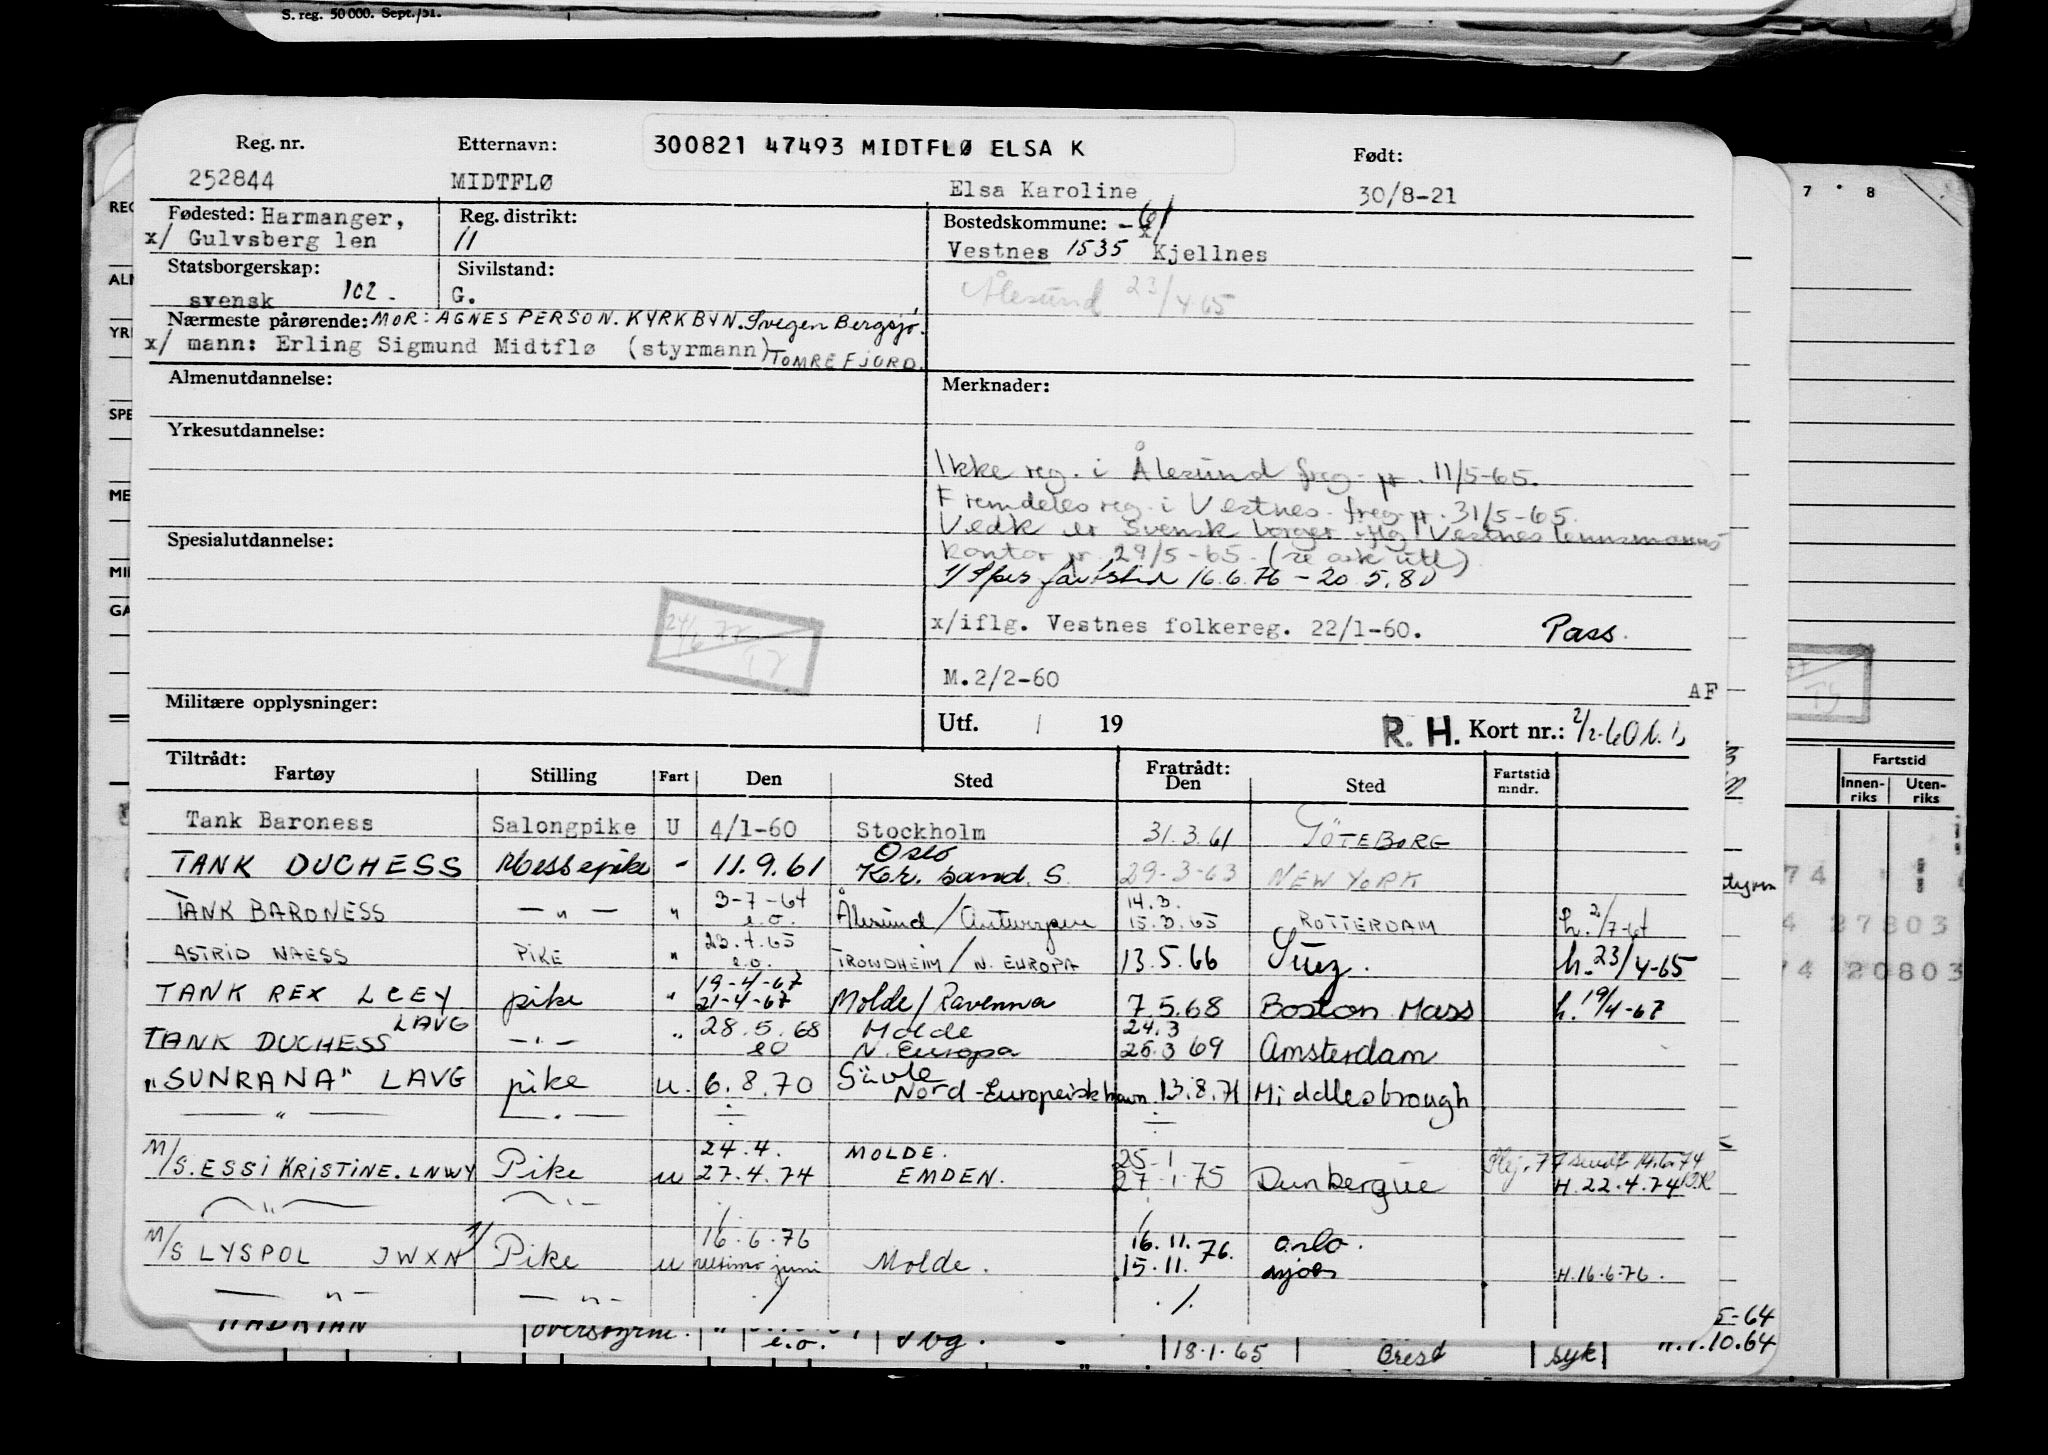 S. reg. 50 000. Sept./51.
Reg. nr. Etternavn: 300821 47493 MIDTFLØ ELSA K Født:
252844 MIDTFLØ Elsa Karoline 30/8-21
Fødested: Harmanger, Reg. distrikt: Bostedskommune: -61
x/ Gulvsberg len 11 Vestnes 1535 Kjellnes
Statsborgerskap: Sivilstand:
svensk 102- G. Ålesund 23/4-65
Nærmeste pårørende: MOR: AGNES PERSON. KYRKBYN. Svegen Bergsjø.
x/ mann: Erling Sigmund Midtflø (styrmann) TOMREFJORD.
Almenutdannelse: Merknader:
Yrkesutdannelse:
Ikke reg. i Ålesund freg. pr. 11/5-65.
Fremdeles reg. i Vestnes freg. pr. 31/5-65.
Vedk er Svensk borger iflg Vestnes lennsmanns
Spesialutdannelse:
kontor pr. 29/5-65. (se ark utl)
1/ Spes fartstid 16.6.76 - 20.5.80
x/iflg. Vestnes folkereg. 22/1-60. Pass.
24/6 77
M.2/2-60
AF
Militære opplysninger: Utf. / 19 R. H. Kort nr.: 2/2-60
Tiltrådt: Fratrådt:
Fartøy Stilling Fart Den Sted Den Sted Fartstid mndr.
Tank Baroness Salongpike U 4/1-60 Stockholm 31.3.61 GÖTEBORG
TANK DUCHESS Messepike - 11.9.61 Oslo Kr. sand. S. 29-3-63 NEW YORK
TANK BARONESS — " — " 3-7-64 e.o. Ålesund / Antwerpen 14.3. 15.3.65 ROTTERDAM h. 2/7-64
ASTRID NAESS PIKE " 23.4.65 e.o. TRONDHEIM / N. EUROPA 13.5.66 Suez. h. 23/4-65
TANK REX LCEY pike " 19-4-67 21-4-67 Molde / Ravenna 7.5.68 Boston Mass h. 19/4-67
TANK DUCHESS LAVG — " — " 28.5.68 eo Molde N. Europa 24.3 26.3 69 Amsterdam
"SUNRANA" LAVG pike u. 6.8.70 Gävle Nord-Europeisk havn 13.8.71 Middlesbrough
— " — — " — ÷ ÷
M/S. ESSI KRISTINE. LNWY Pike u 24.4. 27.4.74 MOLDE. EMDEN. 25.1 27.1.75 Dunkerque sendt 14.6.74 H. 22.4.74
— " — — " — ./. ./.
M/S LYSPOL JWXN 1/ Pike u 16.6.76 ultimo juni Molde. 16.11. 15.11. 76. Oslo. H. 16.6.76.
— " — — " — ./. ./.
HADRIAN overstyrm. " e.o. 18.1.65 Brest syk 10.64
REG
ALM
YRK
SPE
MIL
GA
7 8
Fartstid
Innen-riks Uten-riks
styrm
74
27803
74 20803
5-64